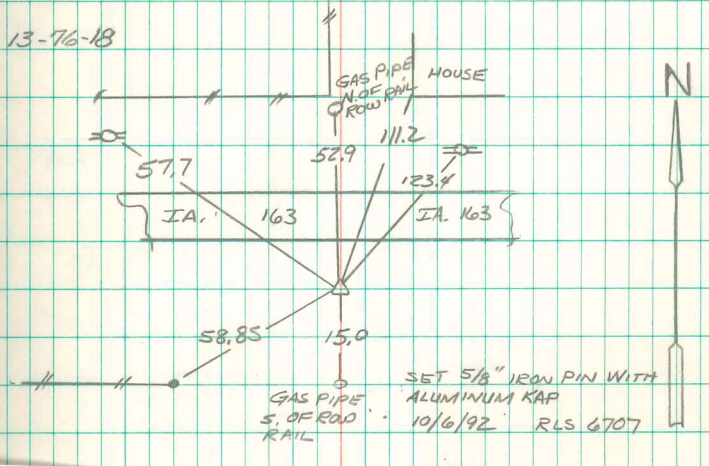 13-76-18
GAS PIPE
N. OF
ROW RAIL
HOUSE
N
52.9
111.2
57.7
123.4
IA. 163
IA. 163
58.85
15.0
GAS PIPE
S. OF ROW
RAIL
SET 5/8" IRON PIN WITH
ALUMINUM KAP
10/6/92 RLS 6707